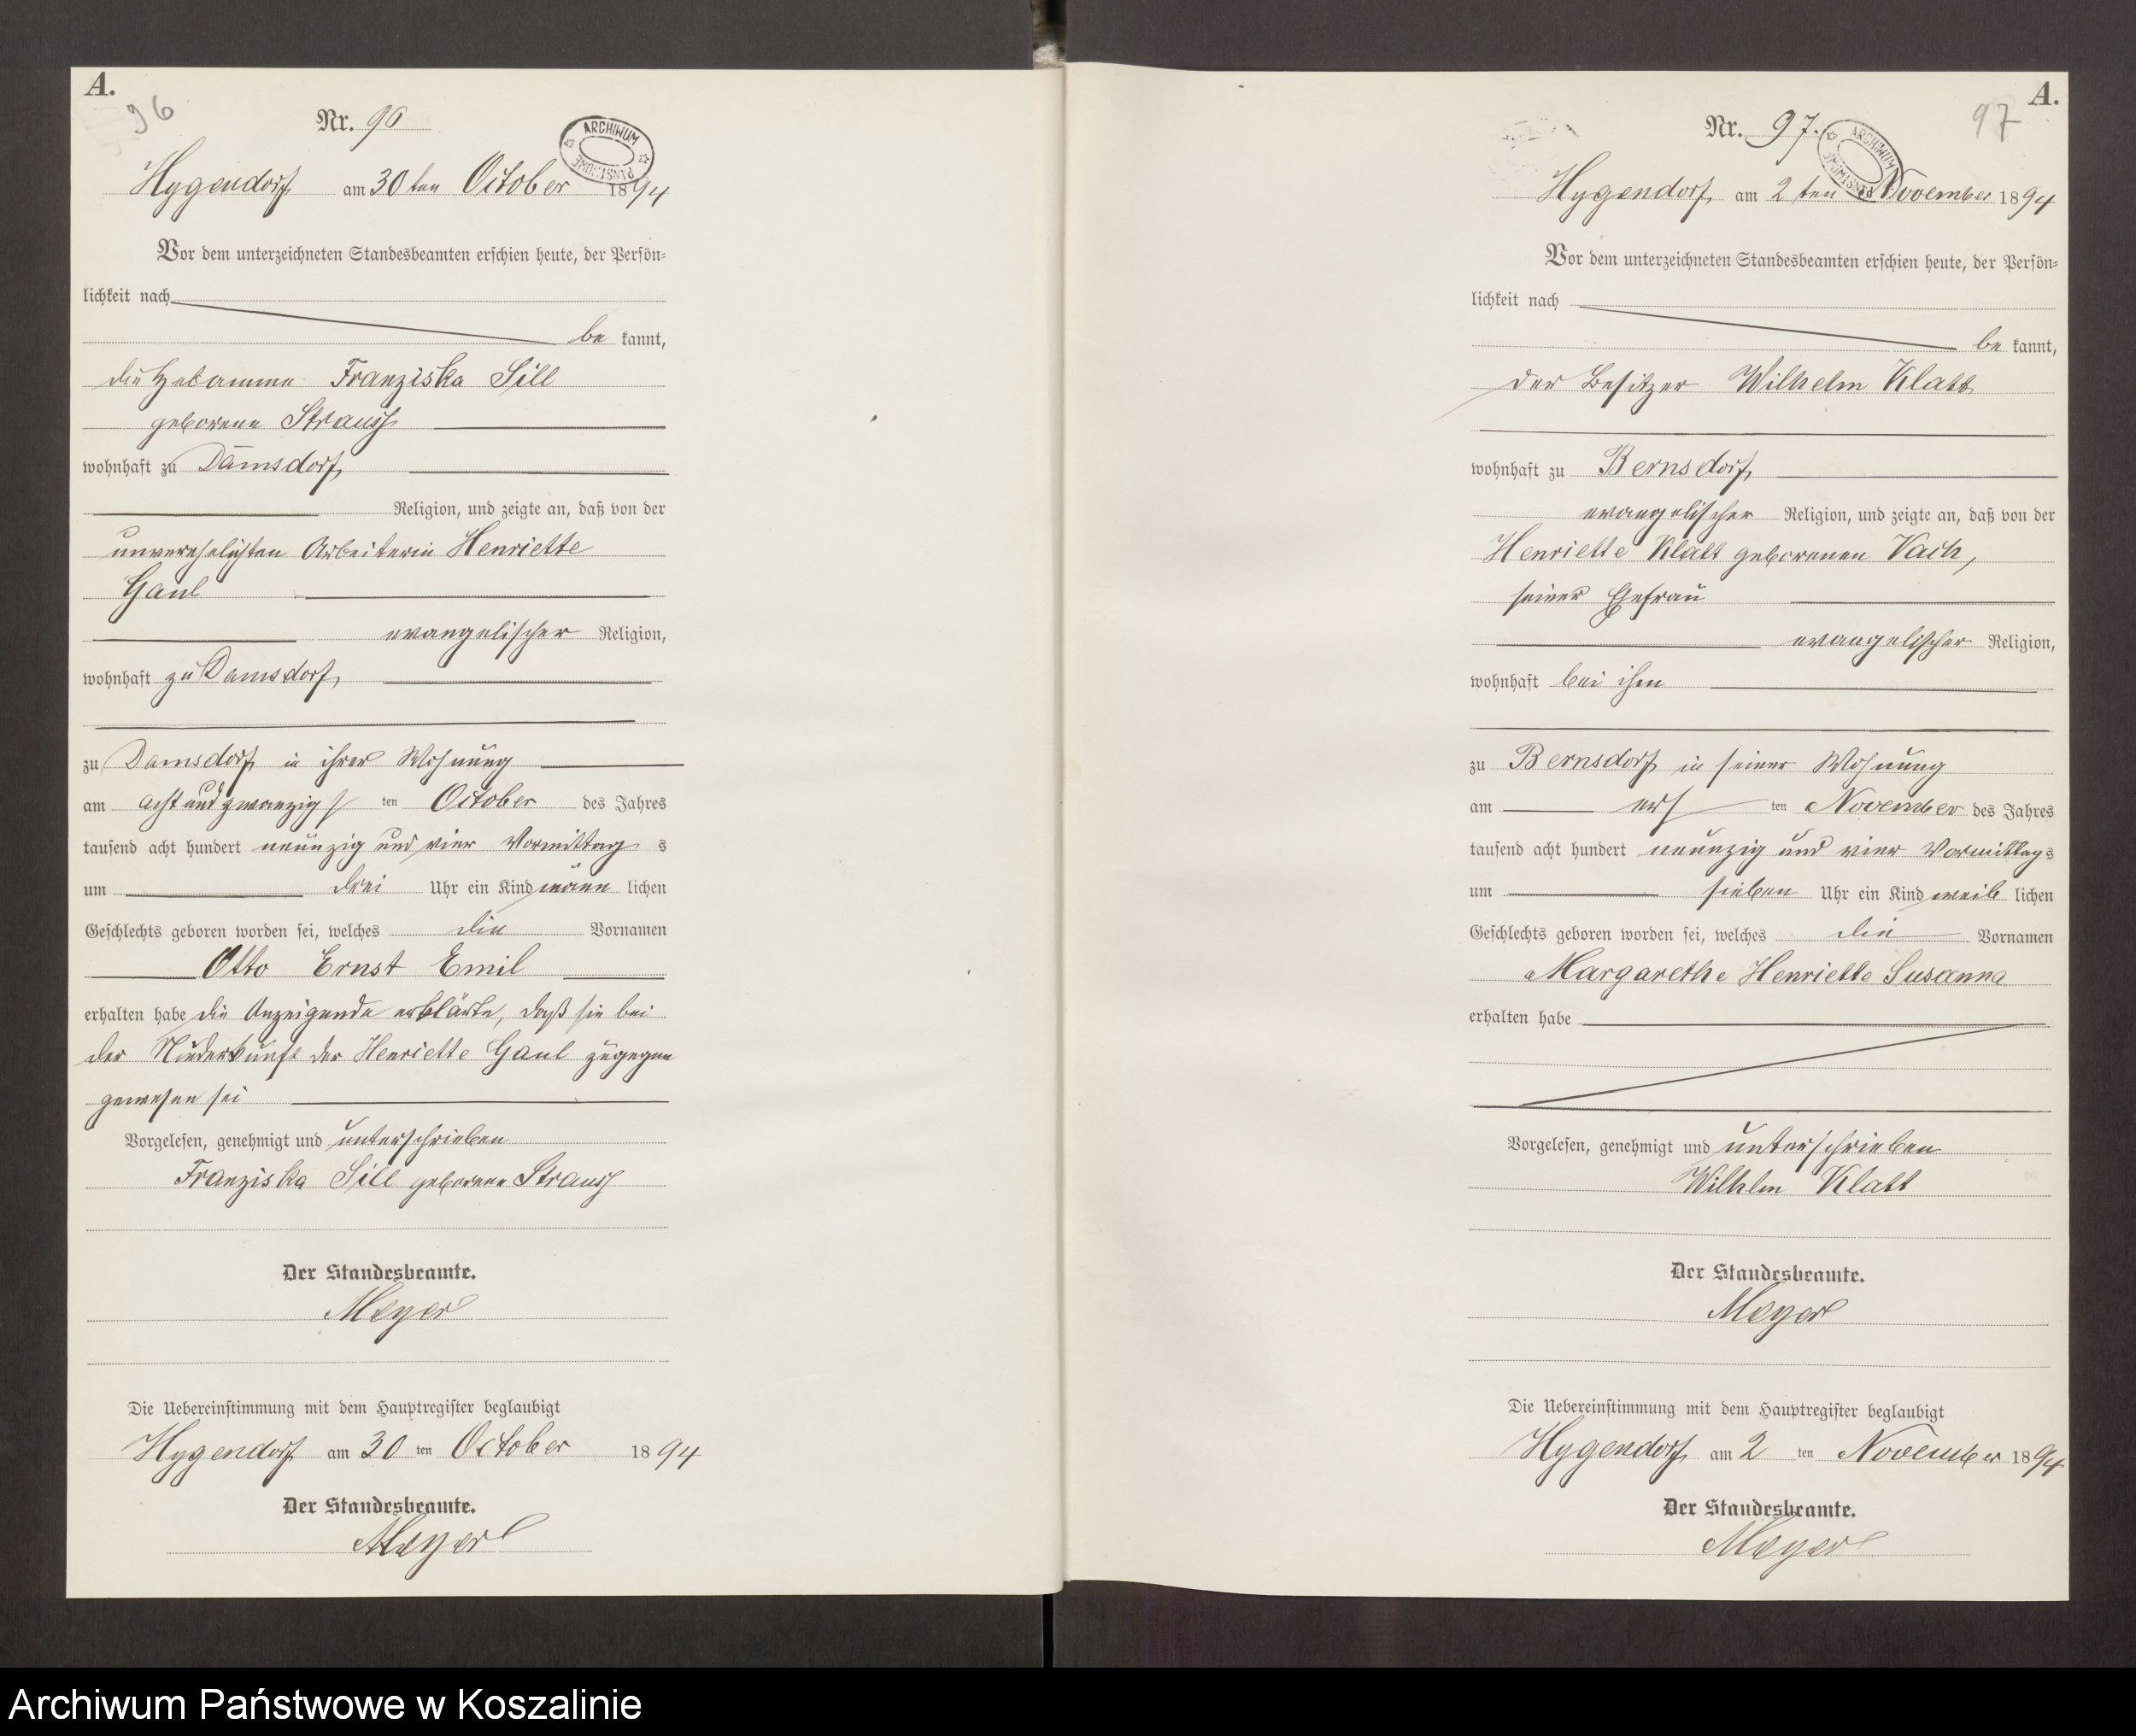 A.
96
Nr. 96
ARCHIWUM PAŃSTWOWE
Hygendorf am 30 ten October 1894
Vor dem unterzeichneten Standesbeamten erschien heute, der Persön-
lichkeit nach
be kannt,
die Hebamme Franziska Sill
geborene Strauss
wohnhaft zu Damsdorf,
Religion, und zeigte an, daß von der
unverehelichten Arbeiterin Henriette
Gaul
evangelischer Religion,
wohnhaft zu Damsdorf,
zu Damsdorf in ihrer Wohnung
am acht und zwanzigs ten October des Jahres
tausend acht hundert neunzig und vier Vormittag s
um drei Uhr ein Kind männ lichen
Geschlechts geboren worden sei, welches die Vornamen
Otto Ernst Emil
erhalten habe die Anzeigende erklärte, daß sie bei
der Niederkunft der Henriette Gaul zugegen
gewesen sei
Vorgelesen, genehmigt und unterschrieben
Franziska Sill geborene Strauss
Der Standesbeamte.
Meyer
Die Uebereinstimmung mit dem Hauptregister beglaubigt
Hygendorf am 30 ten October 1894
Der Standesbeamte.
Meyer
A.
97
Nr. 97.
ARCHIWUM PAŃSTWOWE
Hygendorf, am 2 ten November 1894
Vor dem unterzeichneten Standesbeamten erschien heute, der Persön-
lichkeit nach
be kannt,
der Besitzer Wilhelm Klatt
wohnhaft zu Bernsdorf,
evangelischer Religion, und zeigte an, daß von der
Henriette Klatt geborenen Vach,
seiner Ehefrau
evangelischer Religion,
wohnhaft bei ihm
zu Bernsdorf in seiner Wohnung
am ers ten November des Jahres
tausend acht hundert neunzig und vier Vormittags
um sieben Uhr ein Kind weib lichen
Geschlechts geboren worden sei, welches die Vornamen
Margarethe Henriette Susanna
erhalten habe
Vorgelesen, genehmigt und unterschrieben
Wilhlm Klatt
Der Standesbeamte.
Meyer
Die Uebereinstimmung mit dem Hauptregister beglaubigt
Hygendorf, am 2 ten November 1894
Der Standesbeamte.
Meyer
Archiwum Państwowe w Koszalinie